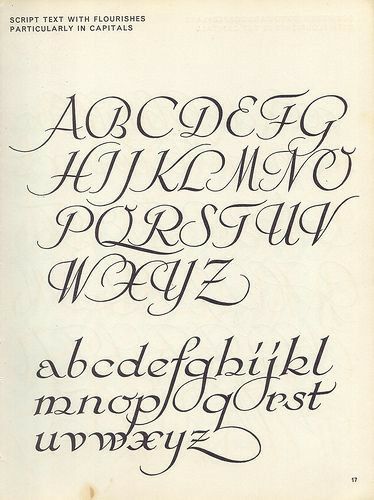 SCRIPT TEXT WITH FLOURISHES
PARTICULARLY IN CAPITALS
ABCDEFG
HIJKLMNO
PQRSTUV
WXYZ
abcdefghijkl
mnopqrst
uvwxyz
17